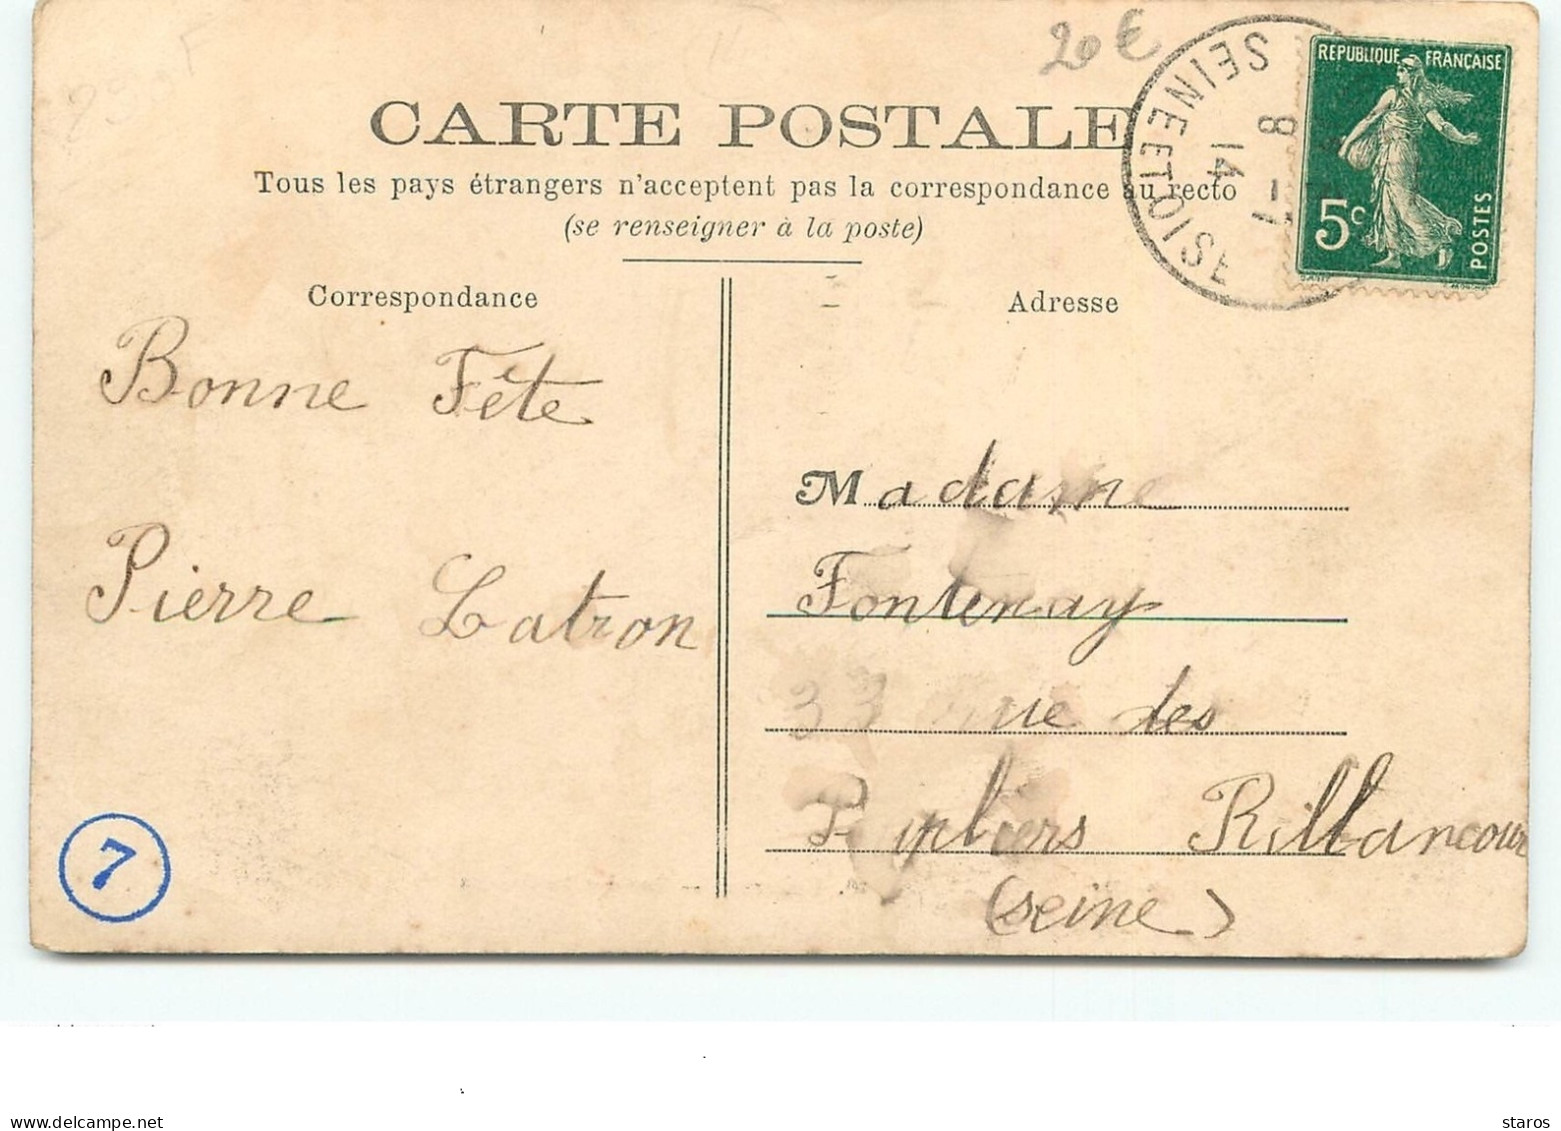 20 €
CARTE POSTALE
Tous les pays étrangers n'acceptent pas la correspondance au recto
(se renseigner à la poste)
SEINE ET OISE
8 -1
14
REPUBLIQUE FRANÇAISE
5c
POSTES
Correspondance
Bonne Fête
Pierre Latron
Adresse
Madame
Fontenay
33 rue des
Pupliers Billancour
(seine)
7
www.delcampe.net
staros